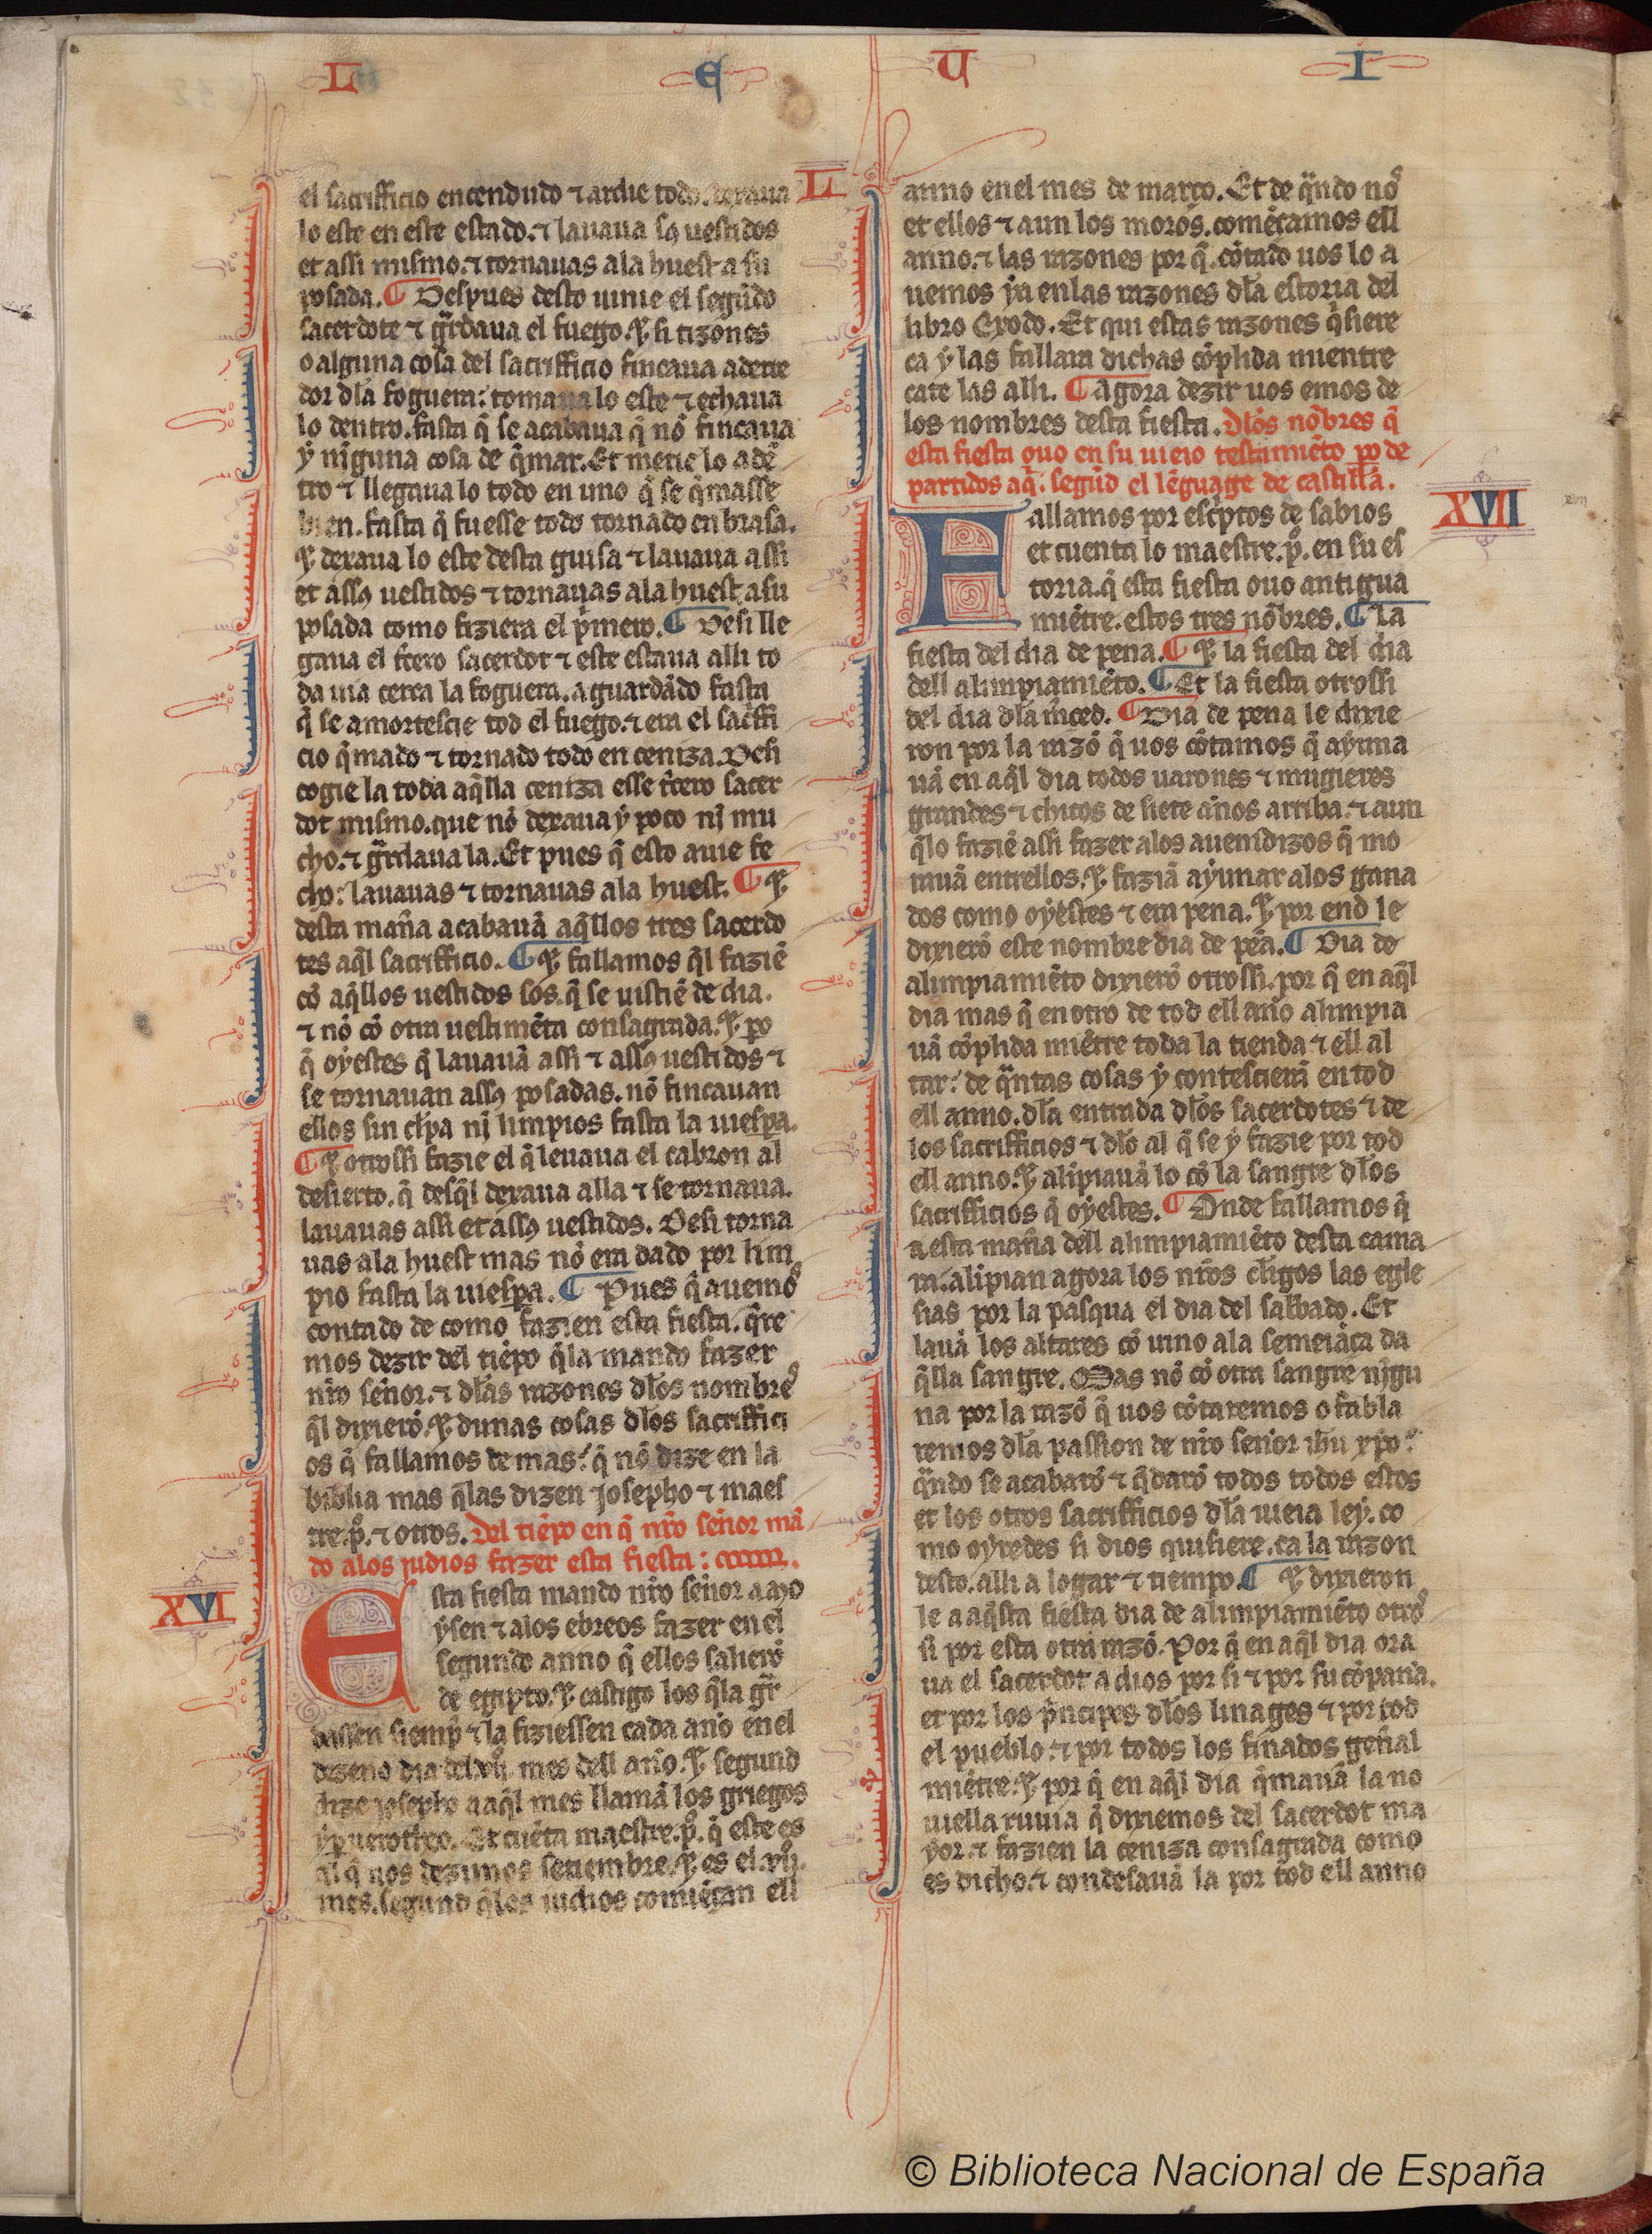 L E U I
el sacrifficio encendudo ⁊ ardie todo. dexaua
lo este en este estado. ⁊ lauaua sꝯ uestidos
et assi mismo. ⁊ tornauas ala huest a su
posada. ¶ Despues desto uinie el segũdo
sacerdote ⁊ gͣrdaua el fuego. Ⴥ si tizones
o alguna cosa del sacrifficio fincaua aderre
dor dl̃a foguera: tomaua lo este ⁊ echaua
lo dentro. fasta q̃ se acabaua q̃ nõ fincaua
ẏ nĩguna cosa de q̃mar. Et metie lo adẽ
tro ⁊ llegaua lo todo en uno q̃ se q̃masse
bien. fasta q̃ fuesse todo tornado en brasa.
Ⴥ dexaua lo este desta guisa ⁊ lauaua assi
et a ssꝯ uestidos ⁊ tornauas ala huest a su
posada como fiziera el p̃mero. ¶ Desi lle
gaua el t̃cero sacerdot ⁊ este estaua alli to
da uia cerca la foguera. aguardãdo fasta
q̃ se amortescie tod el fuego. ⁊ era el sac̃ffi
cio q̃mado ⁊ tornado todo en ceniza. Desi
cogie la toda aq̃lla ceniza esse t̃cero sacer
dot mismo. que nõ dexaua ẏ poco nj mu
cho. ⁊ gͣrdaua la. Et pues q̃ esto auie fe
cho: lauauas ⁊ tornauas ala huest. ¶ Ⴥ
desta mañа acabauã aq̃llos tres sacerdo
tes aq̃l sacrifficio. ¶ Ⴥ fallamos q̃l fazíẽ
cõ aq̃llos uestidos sos. q̃ se uistiẽ de dia.
⁊ nõ cõ otra uestimẽta consagrada. Ⴥ po
q̃ oẏestes q̃ lauauã assi ⁊ assꝯ uestidos ⁊
se tornauan assꝯ posadas. nõ fincauan
ellos sin cl̃pa nj limpios fasta la uiespa.
¶ Ⴥ otrossi fazie el q̃ leuaua el cabron al
desierto. q̃ desq̃l dexaua alla ⁊ se tornaua.
lauauas assi et assꝯ uestidos. Desi torna
uas ala huest mas nõ era dado por lim
pio fasta la uiespa. ¶ Pues q̃ auemõ
contado de como fazien esta fiesta. q̃re
mos dezir del tiẽpo q̃la mando fazer
nr̃o señor. ⁊ dl̃as razones dl̃os nombrẽ
q̃l dixierõ. Ⴥ dunas cosas dl̃os sacriffici
os q̃ fallamos de mas: q̃ nõ dize en la
biblia mas q̃las dizen Josepho ⁊ maes
tre. p̊. ⁊ otros. Del tiẽpo en q̃ nr̃o señor mã
do alos judios fazer esta fiesta:
XVI
Esta fiesta mando nr̃o señor a mo
ẏsen ⁊ alos ebreos fazer en el
segundo anno q̃ ellos salierõ
de egipto. Ⴥ castigo los q̃la gͣr
dassen siemp̃ ⁊ la fiziessen cada año en el
dezeno dia del. vij̊. mes dell año. Ⴥ segund
dize josepho a aq̃l mes llamã los griegos
ẏpuerotheo. Et cuẽta maestre. p̊. q̃ este es
al q̃ nos dezimos setiembre. Ⴥ es el. vij̊.
mes. segund q̃los iudios comiẽçan ell
L
anno en el mes de março. Et de qͣndo nõ
et ellos ⁊ aun los moros. comẽçamos ell
anno. ⁊ las razones por q̃. cõtado uos lo a
uemos ẏa en las razones dl̃a estoria del
libro Exodo. Et qui estas razones q̃siere
ca ẏ las fallara dichas cõplida mientre
cate las alli. ¶ Agora dezir uos emos de
los nombres desta fiesta. Dl̃os nõbres q̃
esta fiesta ouo en su uieio testamiẽto po de
partidos aq̃. segũd el lẽguage de castilla.
XVII
Fallamos por esc̃ptos de sabios
et cuenta lo maestre. p̊. en su es
toria. q̃ esta fiesta ouo antigua
miẽtre. estos tres nõbres. ¶ La
fiesta del dia de pena. ¶ Ⴥ la fiesta del dia
dell alimpiamiẽto. ¶ Et la fiesta otrossi
del dia dl̃a m̃ced. ¶ Dia de pena le dixie
ron por la razõ q̃ uos cõtamos q̃ aẏuna
uã en aq̃l dia todos uarones ⁊ mugieres
grandes ⁊ chicos de siete años arriba. ⁊ aun
q̃lo fazíẽ assi fazer alos auenidizos q̃ mo
rauã entrellos. Ⴥ faziã aẏunar alos gana
dos como oẏestes ⁊ era pena. Ⴥ por end le
dixierõ este nombre dia de pẽa. ¶ Dia de
alimpiamiẽto dixierõ otrossi. por q̃ en aq̃l
dia mas q̃ en otro de tod ell año alimpia
uã cõplida miẽtre toda la tienda ⁊ ell al
tar: de qͣntas cosas ẏ contescierã en tod
ell anno. dl̃a entrada dl̃os sacerdotes ⁊ de
los sacrifficios ⁊ dl̃o al q̃ se ẏ fazie por tod
ell anno. Ⴥ alĩpiauã lo cõ la sangre dl̃os
sacrifficios q̃ oẏestes. ¶ Onde fallamos q̃
a esta mañа dell alimpiamiẽto desta cama
ra. alĩpian agora los nr̃os cl̃igos las egle
sias por la pasqua el dia del sabbado. Et
lauã los altares cõ uino ala semeiãça da
q̃lla sangre. Mas nõ cõ otra sangre nĩgu
na por la razõ q̃ uos cõtaremos o fabla
remos dl̃a passion de nr̃o señor ihũ xp̃o:
qͣndo se acabarõ ⁊ q̃darõ todos todos estos
et los otros sacrifficios dl̃a uieia leẏ. co
mo oẏredes si dios quisiere. ca la razon
desto. alli a logar ⁊ tiempo. ¶ Ⴥ dixieron
le a aq̃sta fiesta dia de alimpiamiẽto otro
si por esta otra razõ. Por q̃ en aq̃l dia ora
ua el sacerdot a dios por si ⁊ por su cõpaña.
et por los p̃ncipes dl̃os linages ⁊ por tod
el pueblo. ⁊ por todos los finados geñal
miẽtre. Ⴥ por q̃ en aq̃l dia q̃mauã la no
uiella ruuia q̃ dixiemos del sacerdot ma
ẏor. ⁊ fazien la ceniza consagrada como
es dicho. ⁊ condesauã la por tod ell anno
© Biblioteca Nacional de España